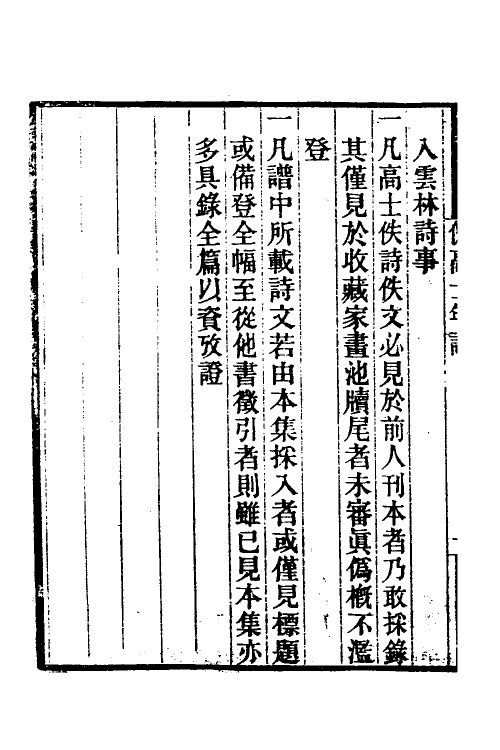 入雲林詩事
一凡高士佚詩佚文必見於前人刊本者乃敢採錄
其僅見於收藏家畫池牘尾者未審眞僞槪不濫
登
一凡譜中所載詩文若由本集採入者或僅見標題
或備登全幅至從他書徵引者則雖已見本集亦
多具錄全篇以資攷證